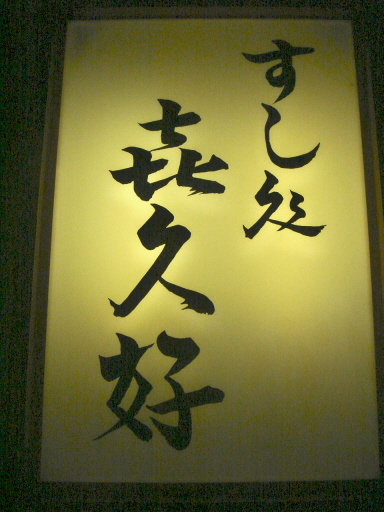 すし処
㐂久好